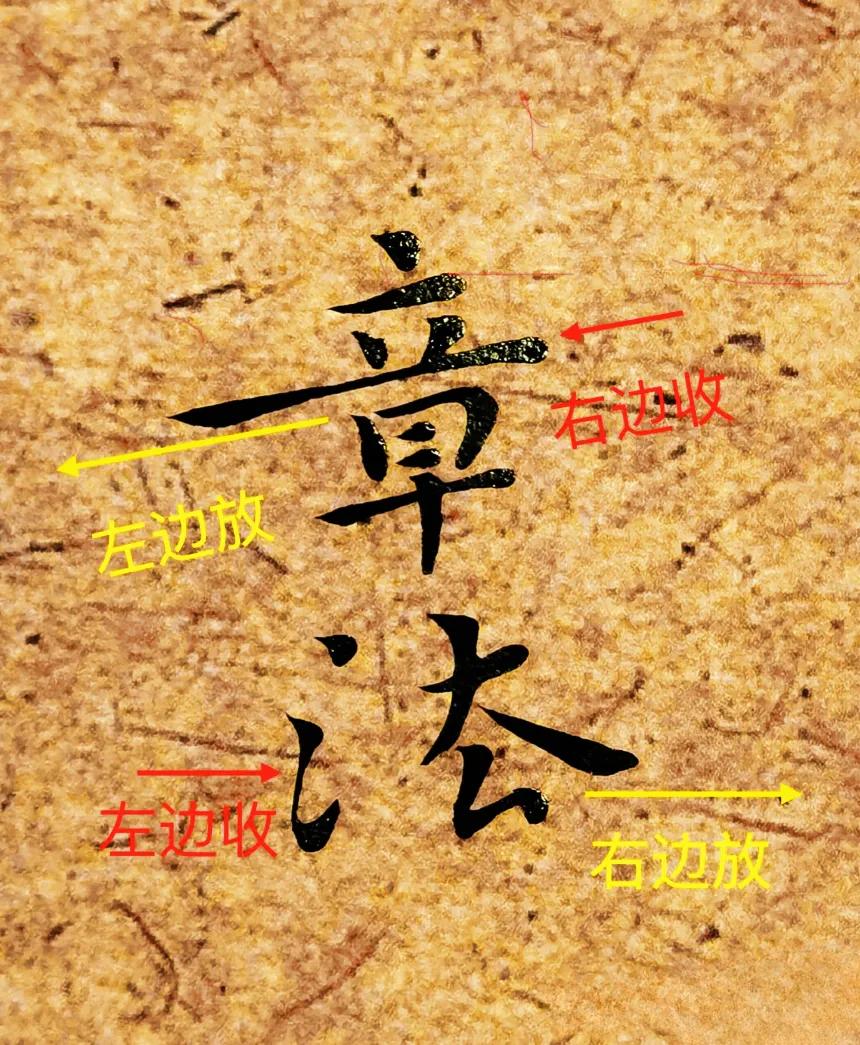 章
右边收
左边放
法
左边收
右边放